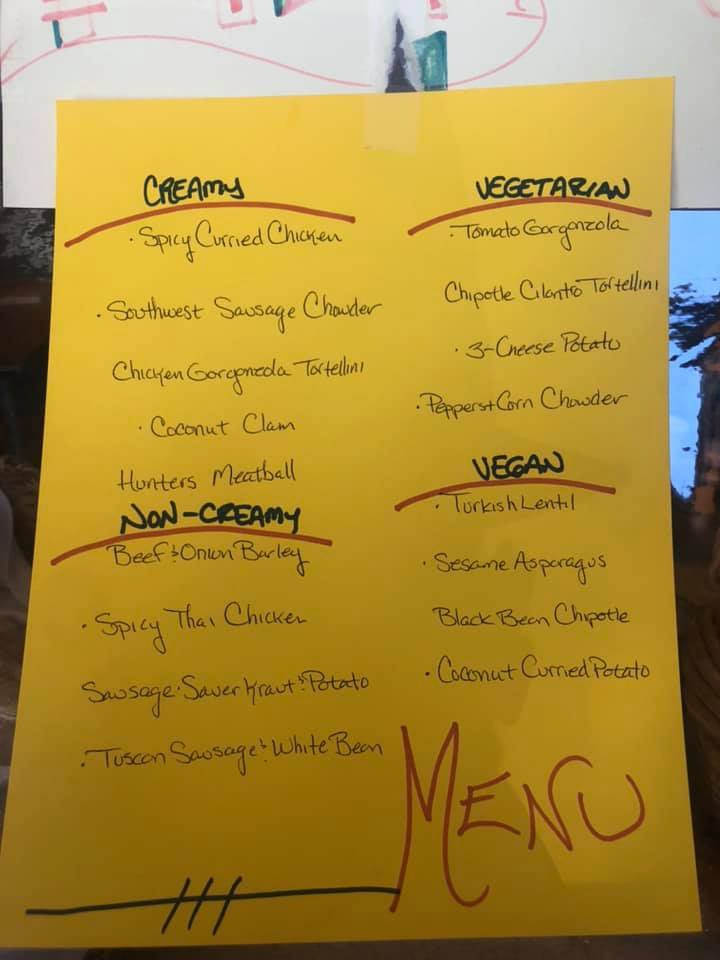 CREAMY
· Spicy Curried Chicken
· Southwest Sausage Chowder
Chicken Gorgonzola Tortellini
· Coconut Clam
Hunters Meatball
NON-CREAMY
Beef & Onion Barley
· Spicy Thai Chicken
Sausage · Sauer Kraut & Potato
· Tuscan Sausage & White Bean
VEGETARIAN
· Tomato Gorgonzola
Chipotle Cilantro Tortellini
· 3-Cheese Potato
· Pepper & Corn Chowder
VEGAN
· Turkish Lentil
· Sesame Asparagus
Black Bean Chipotle
· Coconut Curried Potato
MENU